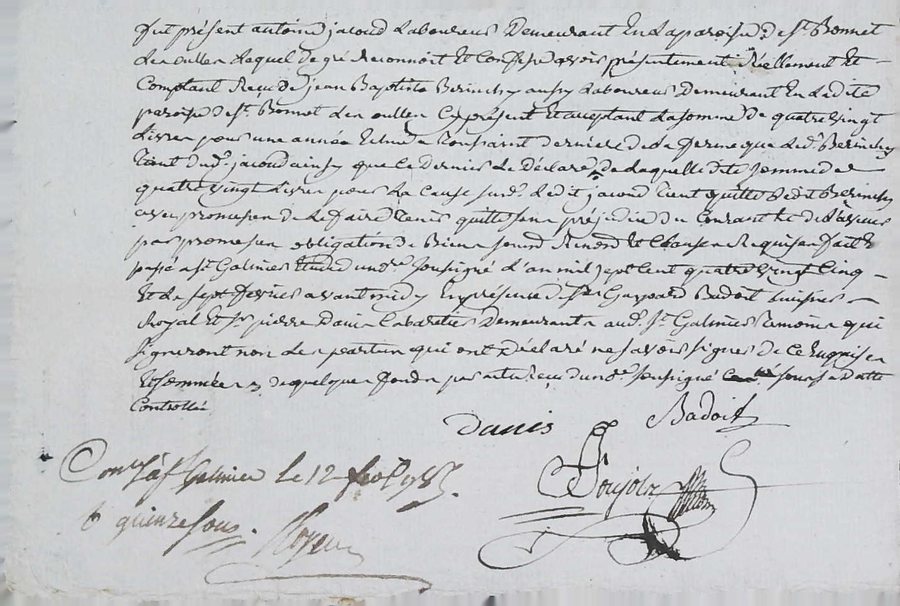 fut présent antoine jacoud Laboureur Demeurant En La paroisse de st. Bonnet
Les oulles Lequel de gré reconnoit Et Confesse avoir présentement réellement Et
Comptant Reçu de jean Baptiste Berincher aussy Laboureur Demeurant En Ladite
paroisse de st. Bonnet Les oulles Cy présent Et acceptant La somme de quatre vingt
Livres pour une année Echue a toussaint dernier de ferme que Led. Berincher
tient dud. jacoud ainsy que Ce dernier Le Déclare de Laquelle dite somme de
quatre vingt Livres pour La Cause susd. Ledit jacoud tient quitte Ledit Berincher
avec promesse de Le faire tenir quitte sans préjudice du Courant
par promesse obligation de Biens soumd Renond Et Clauses Requises fait Et
passé a st. Galmier Etude du nore. soussigné L'an mil sept Cent quatre vingt Cinq
Et Le sept fevrier avant midy En présence de sr. Gaspard Badoit huissier
Royal Et sr. pierre Danis Cabaretier Demeurants aud. st. Galmier temoins qui
signeront non Les parties qui ont Déclaré ne savoir signer de Ce Enquises
Et sommées de quelques fonds par acte reçu du nore. soussigné
Controllé
Danis Badoit
Conlé. à st Galmier Le 12 fevr 1785.
6 quinze sous.